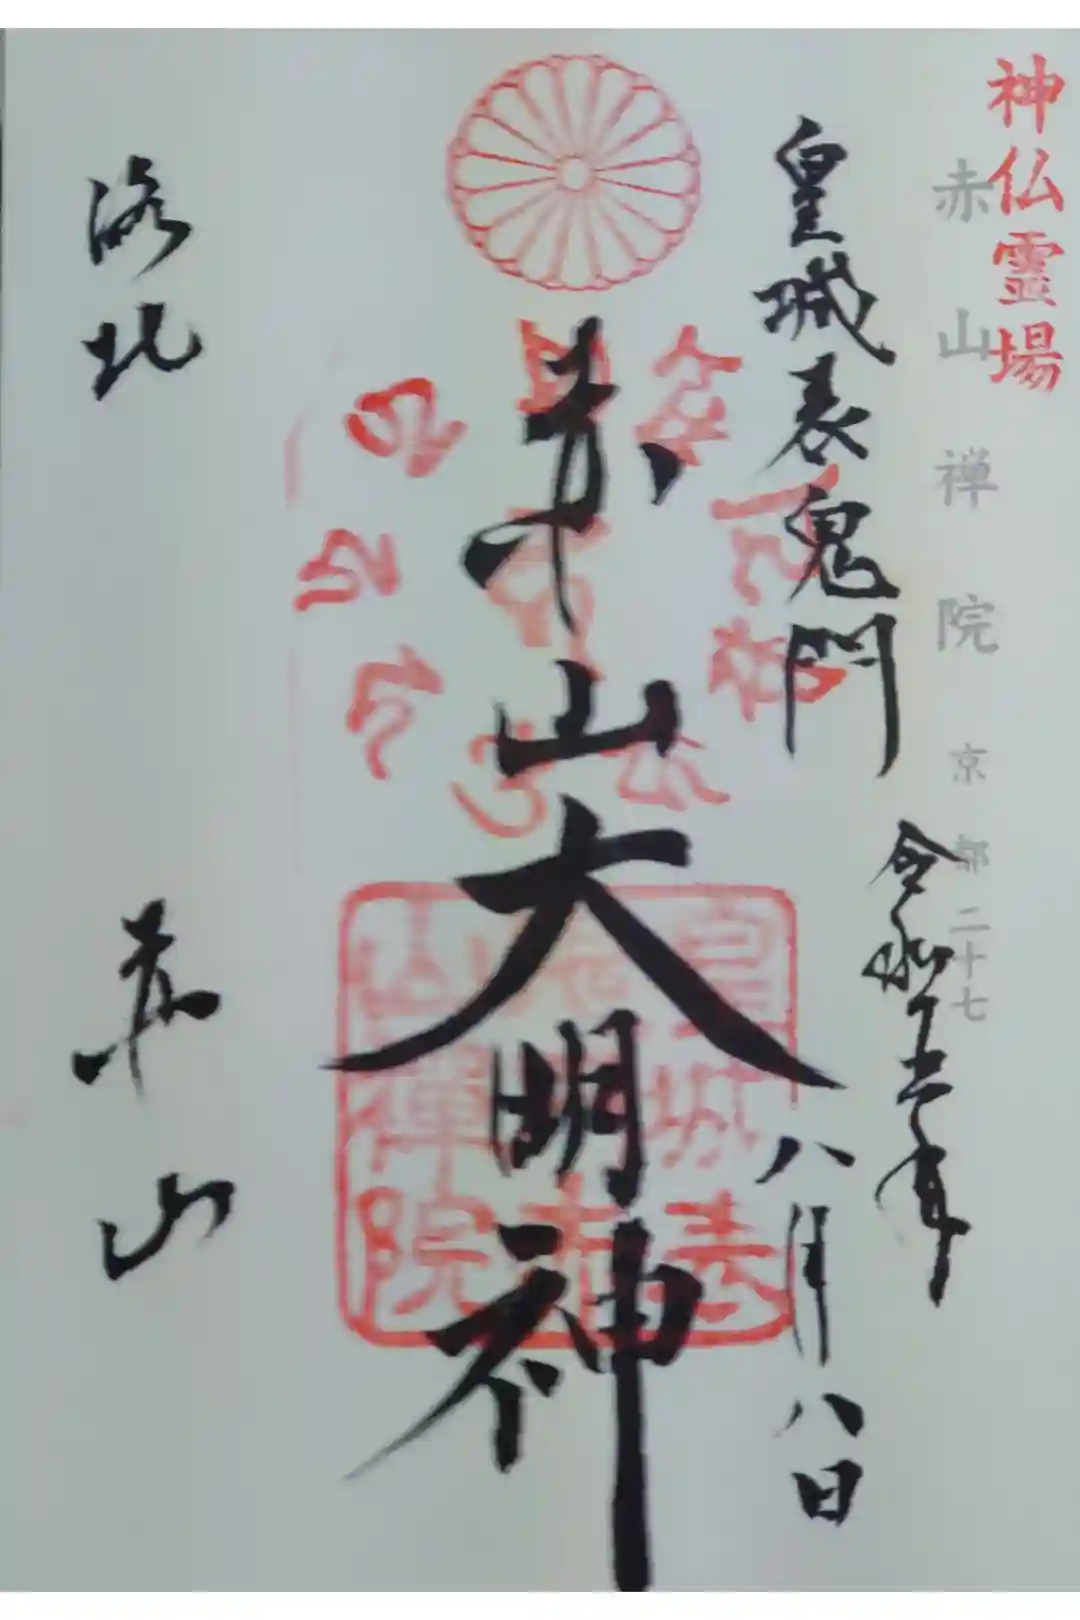 神仏霊場
赤山禅院 京都 二十七
令和五年
八月八日
皇城表鬼門
赤山大明神
皇城表
山禅院
洛北
赤山